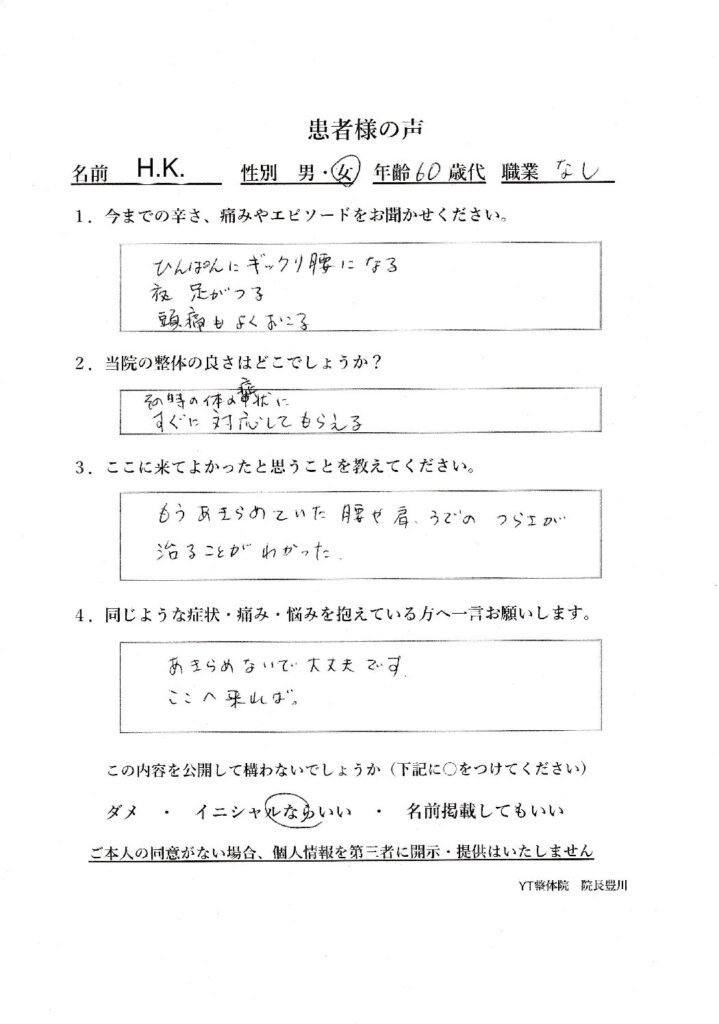 患者様の声
名前 H.K. 性別 男・女 年齢60歳代 職業 なし
1．今までの辛さ、痛みやエピソードをお聞かせください。
ひんぱんにギックリ腰になる
夜 足がつる
頭痛もよくおこる
2．当院の整体の良さはどこでしょうか？
その時の体の症状に
すぐに対応してもらえる
3．ここに来てよかったと思うことを教えてください。
もうあきらめていた腰や肩、うでのつらさが
治ることがわかった.
4．同じような症状・痛み・悩みを抱えている方へ一言お願いします。
あきらめないで大丈夫です.
ここへ来れば。
この内容を公開して構わないでしょうか（下記に○をつけてください）
ダメ ・ イニシャルならいい ・ 名前掲載してもいい
ご本人の同意がない場合、個人情報を第三者に開示・提供はいたしません
YT整体院 院長豊川